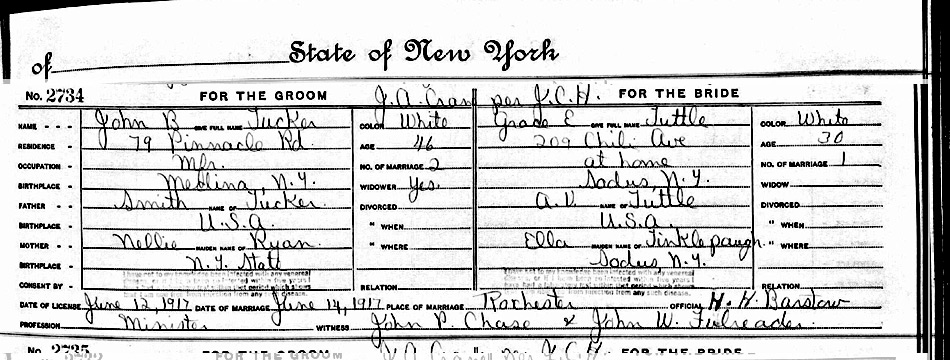 of State of New York
No. 2734 FOR THE GROOM J. A. Cran per J. C. H. FOR THE BRIDE
NAME John B GIVE FULL NAME Tucker COLOR White Grace E GIVE FULL NAME Tuttle COLOR White
RESIDENCE 79 Pinnacle Rd. AGE 46 209 Chili Ave AGE 30
OCCUPATION Mfr. NO. OF MARRIAGE 2 at home NO. OF MARRIAGE 1
BIRTHPLACE Medina, N.Y. WIDOWER Yes. Sodus, N.Y. WIDOW
FATHER Smith NAME OF Tucker. DIVORCED A. V. NAME OF Tuttle DIVORCED
BIRTHPLACE U.S.A. " WHEN U.S.A. " WHEN
MOTHER Nellie MAIDEN NAME OF Ryan. " WHERE Ella MAIDEN NAME OF Tinklepaugh. " WHERE
BIRTHPLACE N.Y. State Sodus, N.Y.
CONSENT BY RELATION RELATION
DATE OF LICENSE June 12, 1917 DATE OF MARRIAGE June 14, 1917 PLACE OF MARRIAGE Rochester OFFICIAL H. H. Barstow
PROFESSION Minister WITNESS John P. Chase & John W.
No. 2735 FOR THE GROOM FOR THE BRIDE